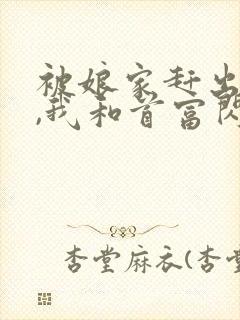 被娘家赶出
,我和首富闪
杏堂麻衣(杏堂